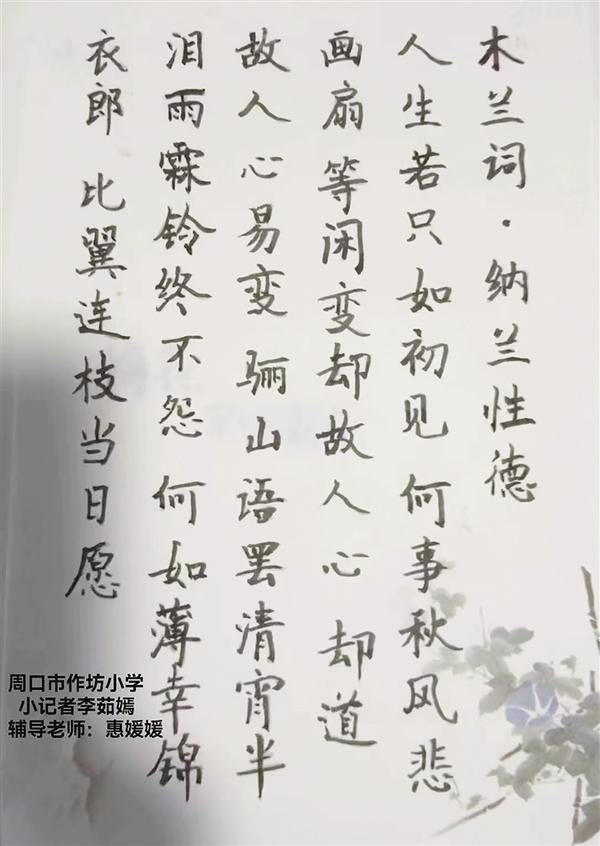 木兰词·纳兰性德
人生若只如初见 何事秋风悲
画扇 等闲变却故人心 却道
故人心易变 骊山语罢清宵半
泪雨霖铃终不怨 何如薄幸锦
衣郎 比翼连枝当日愿
周口市作坊小学
小记者李茹嫣
辅导老师：惠媛媛